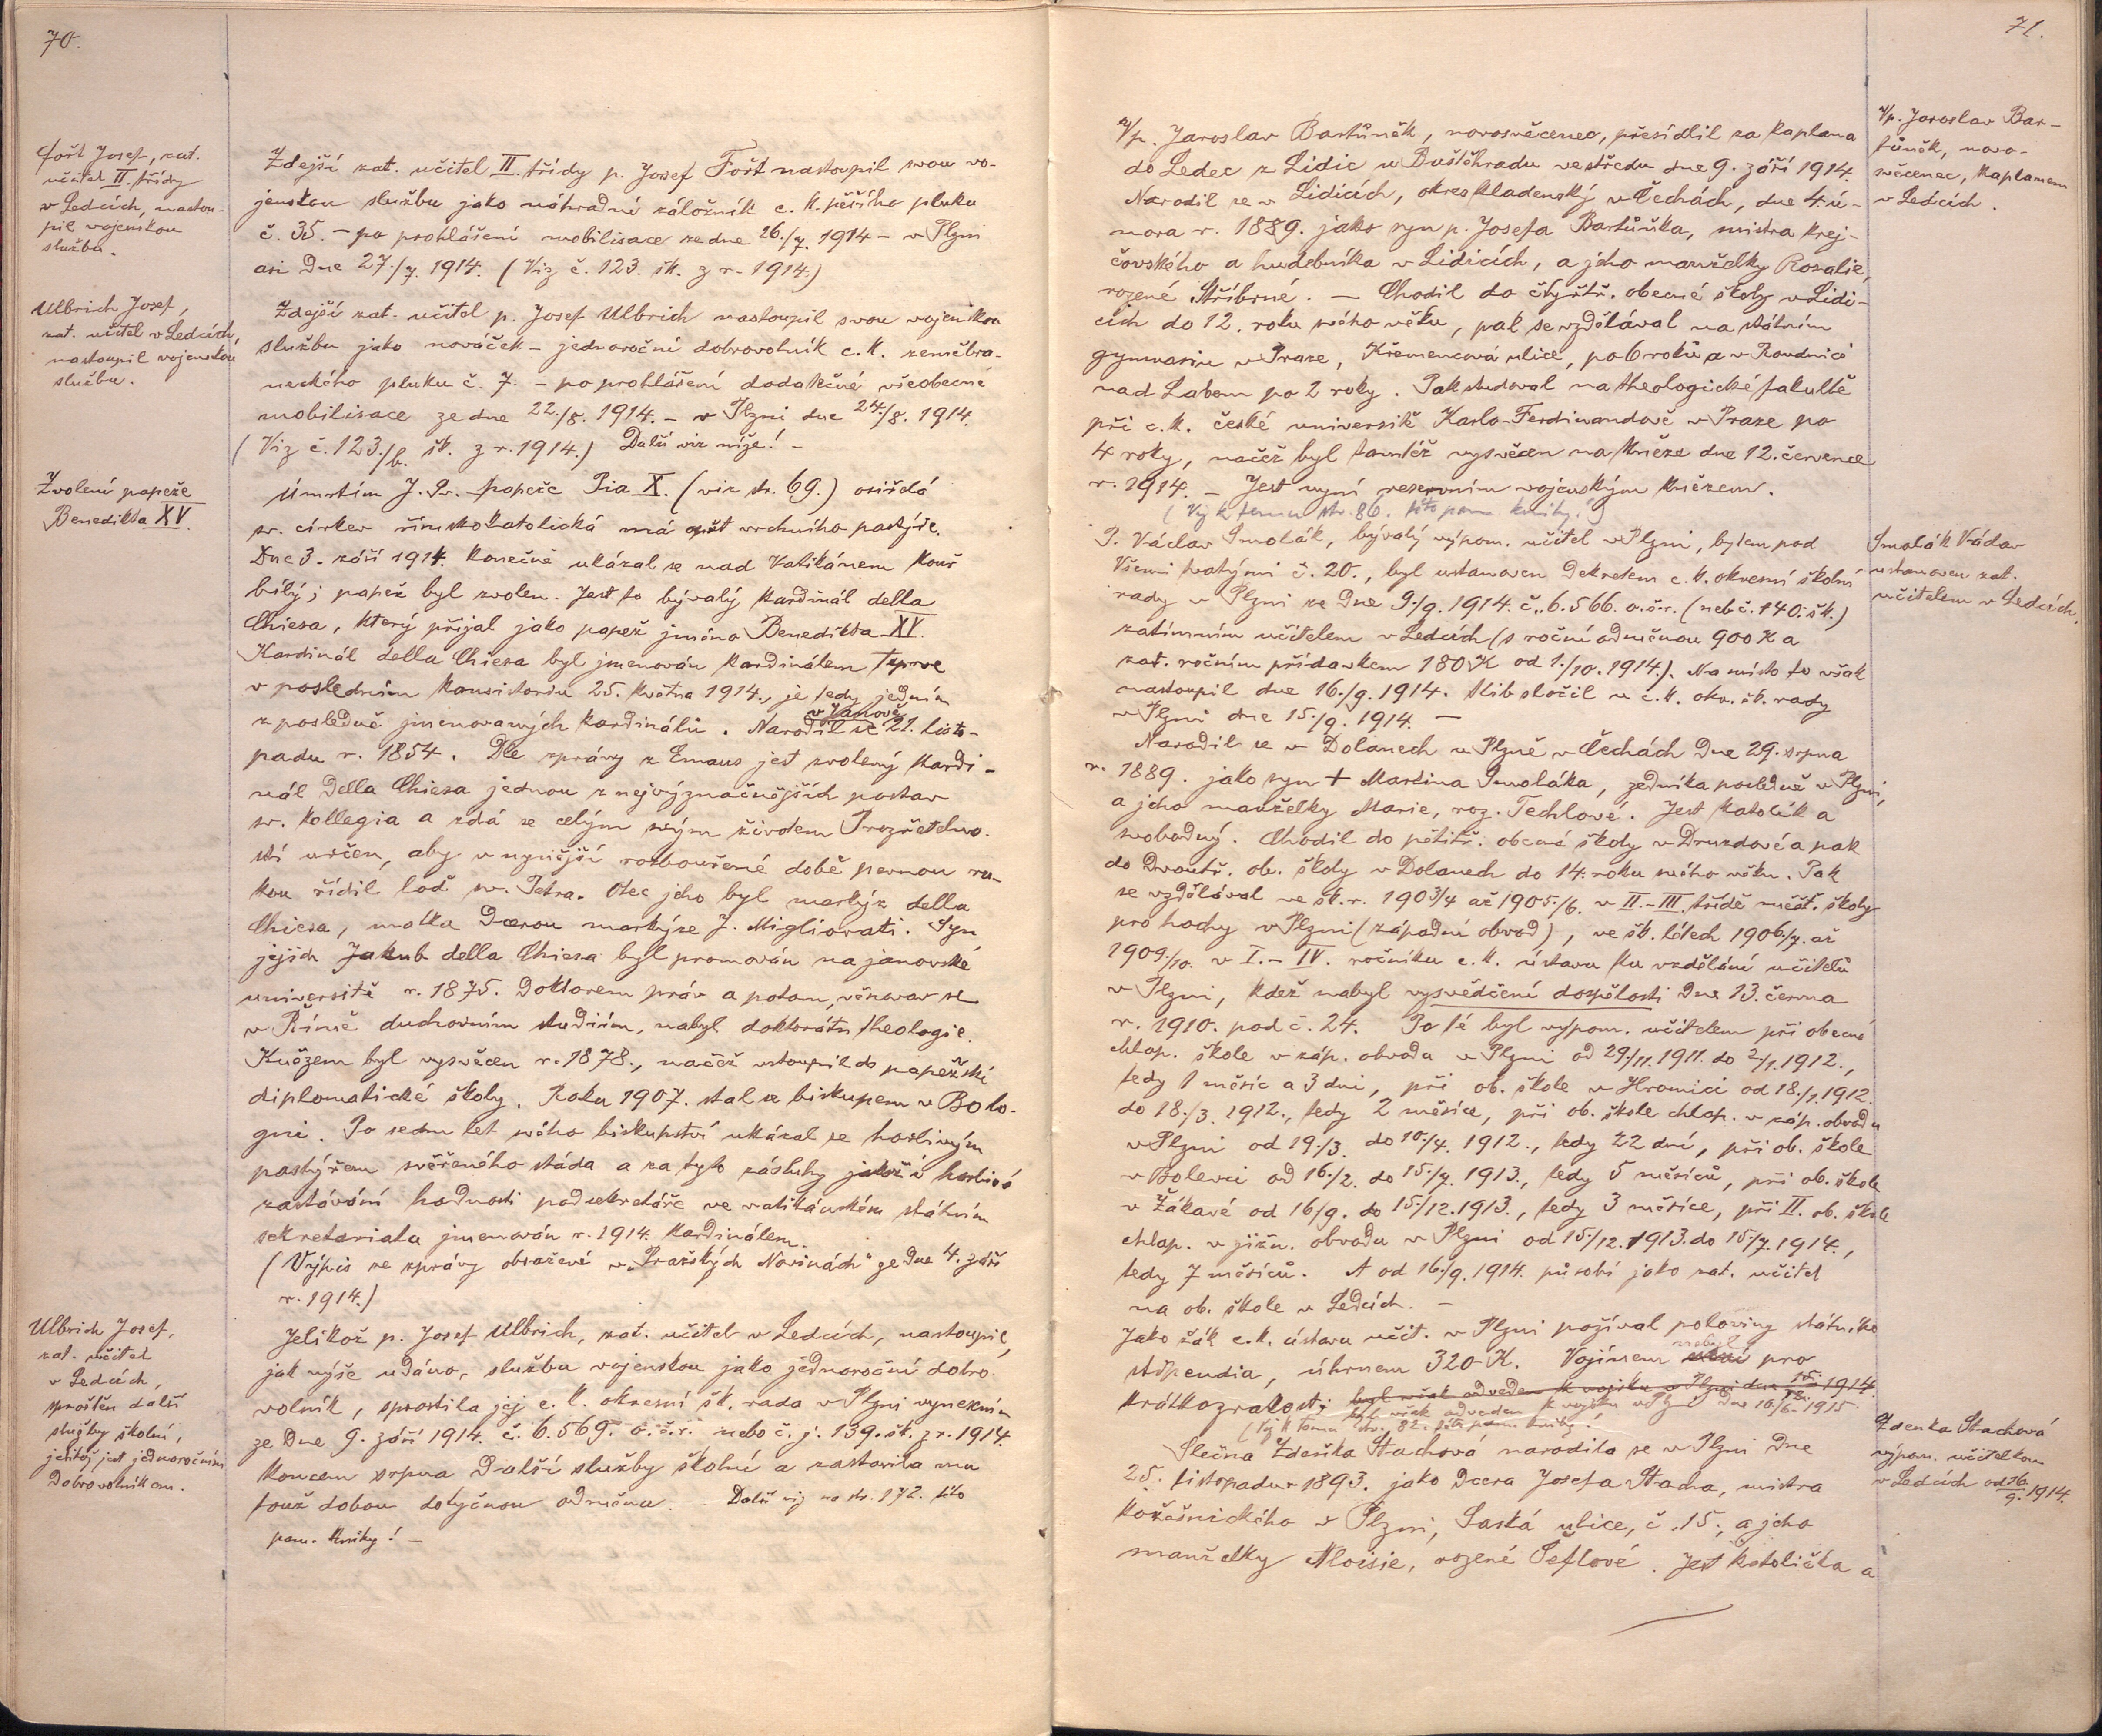 70.
Fošt Josef, zat.
učitel II. třídy
v Ledcích, nastou-
pil vojenskou
službu.
Zdejší zat. učitel II. třídy p. Josef Fošt nastoupil svou vo-
jenskou službu jako náhradní záložník c. k. pěšího pluku
č. 35. – po prohlášení mobilisace ze dne 26./7. 1914 – v Plzni
asi dne 27./7. 1914. (Viz č. 123. šk. z r. 1914.)
Ulbrich Josef,
zat. učitel v Ledcích,
nastoupil vojenskou
službu.
Zdejší zat. učitel p. Josef Ulbrich nastoupil svou vojenskou
službu jako nováček – jednoroční dobrovolník c. k. zeměbra-
neckého pluku č. 7. – po prohlášení dodatečné všeobecné
mobilisace ze dne 22./8. 1914. – v Plzni dne 24./8. 1914.
(Viz č. 123./b. šk. z r. 1914.) Další viz níže! –
Zvolení papeže
Benedikta XV.
Úmrtím J. Sv. papeže Pia X. (viz str. 69.) osiřelá
sv. církev římskokatolická má opět vrchního pastýře.
Dne 3. září 1914. konečně ukázal se nad Vatikánem kouř
bílý; papež byl zvolen. Jest to bývalý kardinál della
Chiesa, který přijal jako papež jméno Benedikta XV.
Kardinál della Chiesa byl jmenován kardinálem teprve
v posledním konsistoriu 25. května 1914., je tedy jedním
z posledně jmenovaných kardinálů. Narodil se v Janově 21. listo-
padu r. 1854. Dle zprávy z Emaus jest zvolený kardi-
nál della Chiesa jednou z nejvýznačnějších postav
sv. kollegia a zdá se celým svým životem Prozřetelno-
stí určen, aby v nynější rozbouřené době pevnou ru-
kou řídil loď sv. Petra. Otec jeho byl markýz della
Chiesa, matka dcerou markýze J. Migliorati. Syn
jejich Jakub della Chiesa byl promován na janovské
universitě r. 1875. doktorem práv a potom, věnovav se
v Římě duchovním studiím, nabyl doktorátu theologie.
Knězem byl vysvěcen r. 1878., načež vstoupil do papežské
diplomatické školy. Roku 1907. stal se biskupem v Bolo-
gni. Po sedm let svého biskupství ukázal se horlivým
pastýřem svěřeného stáda a za tyto zásluhy jakož i horlivé
zastávání hodnosti podsekretáře ve vatikánském státním
sekretariatu jmenován r. 1914. kardinálem.
(Výpis ze zprávy obsažené v „Pražských Novinách" ze dne 4. září
r. 1914.)
Ulbrich Josef,
zat. učitel
v Ledcích,
sproštěn další
služby školní,
jelikož jest jednoročním
dobrovolníkem.
Jelikož p. Josef Ulbrich, zat. učitel v Ledcích, nastoupil,
jak výše udáno, službu vojenskou jako jednoroční dobro-
volník, sprostila jej c. k. okresní šk. rada v Plzni vynesením
ze dne 9. září 1914. č. 6.569. o.š.r. nebo č. j. 139. šk. z r. 1914.
koncem srpna další služby školní a zastavila mu
touž dobou dotyčnou odměnu. Další viz na str. 172. této
pam. knihy! –
71.
Vp. Jaroslav Bartůněk, novosvěcenec, přesídlil za kaplana
do Ledec z Lidic u Buštěhradu ve středu dne 9. září 1914.
Narodil se v Lidicích, okres kladenský v Čechách, dne 4. ú-
nora r. 1889. jako syn p. Josefa Bartůňka, mistra krej-
čovského a hudebníka v Lidicích, a jeho manželky Rosalie,
rozené Stříbrné. – Chodil do čtyřtř. obecné školy v Lidi-
cích do 12. roku svého věku, pak se vzdělával na státním
gymnasiu v Praze, Křemencová ulice, po 6 roků a v Roudnici
nad Labem po 2 roky. Pak studoval na theologické fakultě
při c. k. české universitě Karlo-Ferdinandově v Praze po
4 roky, načež byl tamtéž vysvěcen na kněze dne 12. července
r. 1914. – Jest nyní reservním vojenským knězem.
(Viz k tomu str. 86. této pam. knihy!)
Vp. Jaroslav Bar-
tůněk, novo-
svěcenec, kaplanem
v Ledcích.
P. Václav Smolák, bývalý výpom. učitel v Plzni, bytem pod
Všemi svatými č. 20., byl ustanoven dekretem c. k. okresní školní
rady v Plzni ze dne 9./9. 1914. č. 6.566. o.š.r. (neb č. 140. šk.)
zatímním učitelem v Ledcích (s roční odměnou 900 K a
zat. ročním přídavkem 180 K od 1./10. 1914.). Na místo to však
nastoupil dne 16./9. 1914. Slib složil u c. k. okr. šk. rady
v Plzni dne 15./9. 1914. –
Smolák Václav
ustanoven zat.
učitelem v Ledcích.
Narodil se v Dolanech u Plzně v Čechách dne 29. srpna
r. 1889. jako syn † Martina Smoláka, zedníka posledně v Plzni,
a jeho manželky Marie, roz. Techlové. Jest katolík a
svobodný. Chodil do pětitř. obecné školy v Druzdové a pak
do dvoutř. ob. školy v Dolanech do 14. roku svého věku. Pak
se vzdělával ve šk. r. 1903/4 až 1905./6. v II.–III. třídě měšť. školy
pro hochy v Plzni (západní obvod), ve šk. létech 1906./7. až
1909./10. v I.–IV. ročníku c. k. ústavu ku vzdělání učitelů
v Plzni, kdež nabyl vysvědčení dospělosti dne 13. června
r. 1910. pod č. 24. Po té byl výpom. učitelem při obecné
chlap. škole v záp. obvodu v Plzni od 29./11. 1911. do 2./1. 1912.,
tedy 1 měsíc a 3 dni, při ob. škole v Hromici od 18./1. 1912.
do 18./3. 1912., tedy 2 měsíce, při ob. škole chlap. v záp. obvodu
v Plzni od 19./3. do 10./4. 1912., tedy 22 dní, při ob. škole
v Bolevci od 16./2. do 15./7. 1913., tedy 5 měsíců, při ob. škole
v Žákavé od 16/9. do 15/12. 1913., tedy 3 měsíce, při II. ob. škole
chlap. v jižn. obvodu v Plzni od 15./12. 1913. do 15./7. 1914.,
tedy 7 měsíců. A od 16./9. 1914. působí jako zat. učitel
na ob. škole v Ledcích. –
Jako žák c. k. ústavu učit. v Plzni požíval poloviny státního
stipendia, úhrnem 320 K. Vojínem nebyl pro
krátkozrakost; byl však odveden k vojsku v Plzni dne 1914.
byl však odveden k vojsku v Plz dne 16/6. 1915
(Viz k tomu str. 82. této pam. knihy!
Slečna Zdeňka Stachová narodila se v Plzni dne
25. listopadu r. 1893. jako dcera Josefa Stacha, mistra
kožešnického v Plzni, Saská ulice, č. 15., a jeho
manželky Aloisie, rozené Šeflové. Jest katolička a
Zdenka Stachová
výpom. učitelkou
v Ledcích od 16./9. 1914.